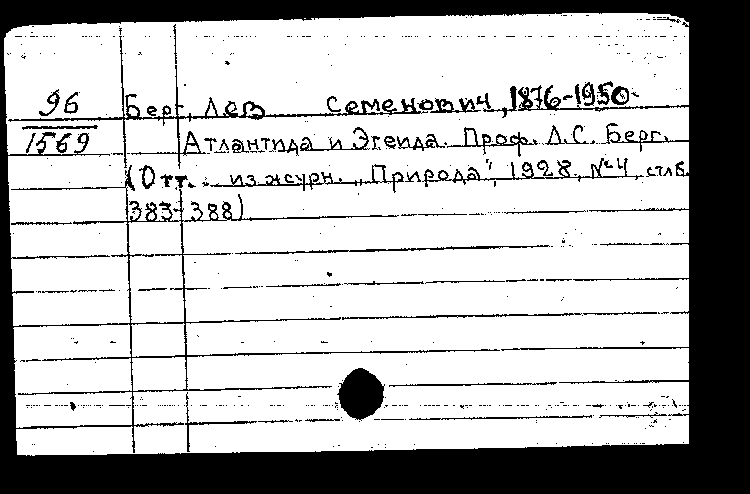 96
1569
Берг, Лев Семенович, 1876-1950.
Атлантида и Эгеида. Проф. Л.С. Берг.
(Отт. из журн. „Природа", 1928, №4, стлб.
383-388)